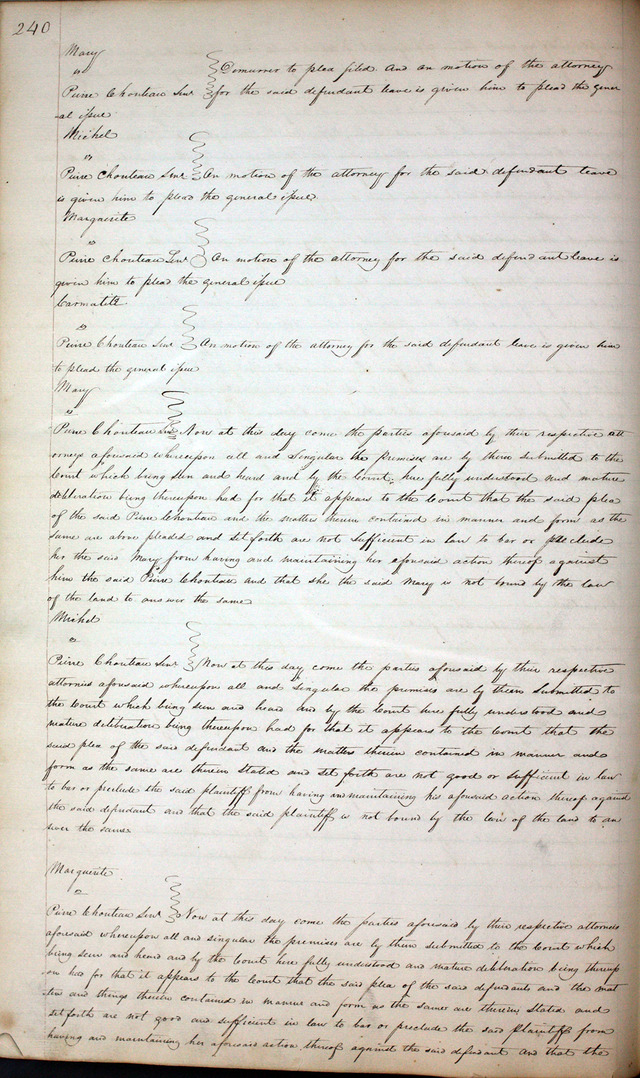 240
Mary
"
Pierre Chouteau Senr Demurrer to plea filed. And on motion of the attorney
for the said defendant leave is given him to plead the gener
-al issue
Michel
"
Pierre Chouteau Senr On motion of the attorney for the said defendant leave
is given him to plead the general issue
Marguerite
"
Pierre Chouteau Senr On motion of the attorney for the said defendant leave is
given him to plead the general issue
Carmalite
"
Pierre Chouteau Senr On motion of the attorney for the said defendant leave is given him
to plead the general issue
Mary
"
Pierre Chouteau Senr Now at this day come the parties aforesaid by their respective att
orneys aforesaid whereupon all and Singular the premises are by them Submitted to the
Court which being seen and heard and by the Court here fully understood and mature
deliberation being thereupon had for that it appears to the Court that the said plea
of the said Pierre Chouteau and the matters therein contained in manner and form as the
same are above pleaded and set forth are not Sufficient in law to bar or preclude
her the said Mary from having and maintaining her aforesaid action thereof against
him the said Pierre Chouteau and that she the said Mary is not bound by the law
of the land to answer the same
Michel
"
Pierre Chouteau Senr Now at this day come the parties aforesaid by their respective
attornies aforesaid whereupon all and singular the premises are by them Submitted to
the Court which being seen and heard and by the Court here fully understood and
mature deliberation being thereupon had for that it appears to the Court that the
said plea of the said defendant and the matters therein contained in manner and
form as the same are therein Stated and set forth are not good or Sufficient in law
to bar or preclude the said plaintiff from having and maintaining his aforesaid action thereof against
the said defendant and that the said plaintiff is not bound by the law of the land to an
swer the same
Marguerite
"
Pierre Chouteau Senr Now at this day come the parties aforesaid by their respective attornies
aforesaid whereupon all and singular the premises are by them submitted to the Court which
being seen and heard and by the Court here fully understood and mature deliberation being thereup
on had for that it appears to the Court that the said plea of the said defendants and the mat
ters and things therein contained in manner and form as the same are therein Stated and
set forth are not good and sufficient in law to bar or preclude the said Plaintiff from
having and maintaining her aforesaid action thereof against the said defendant and that the